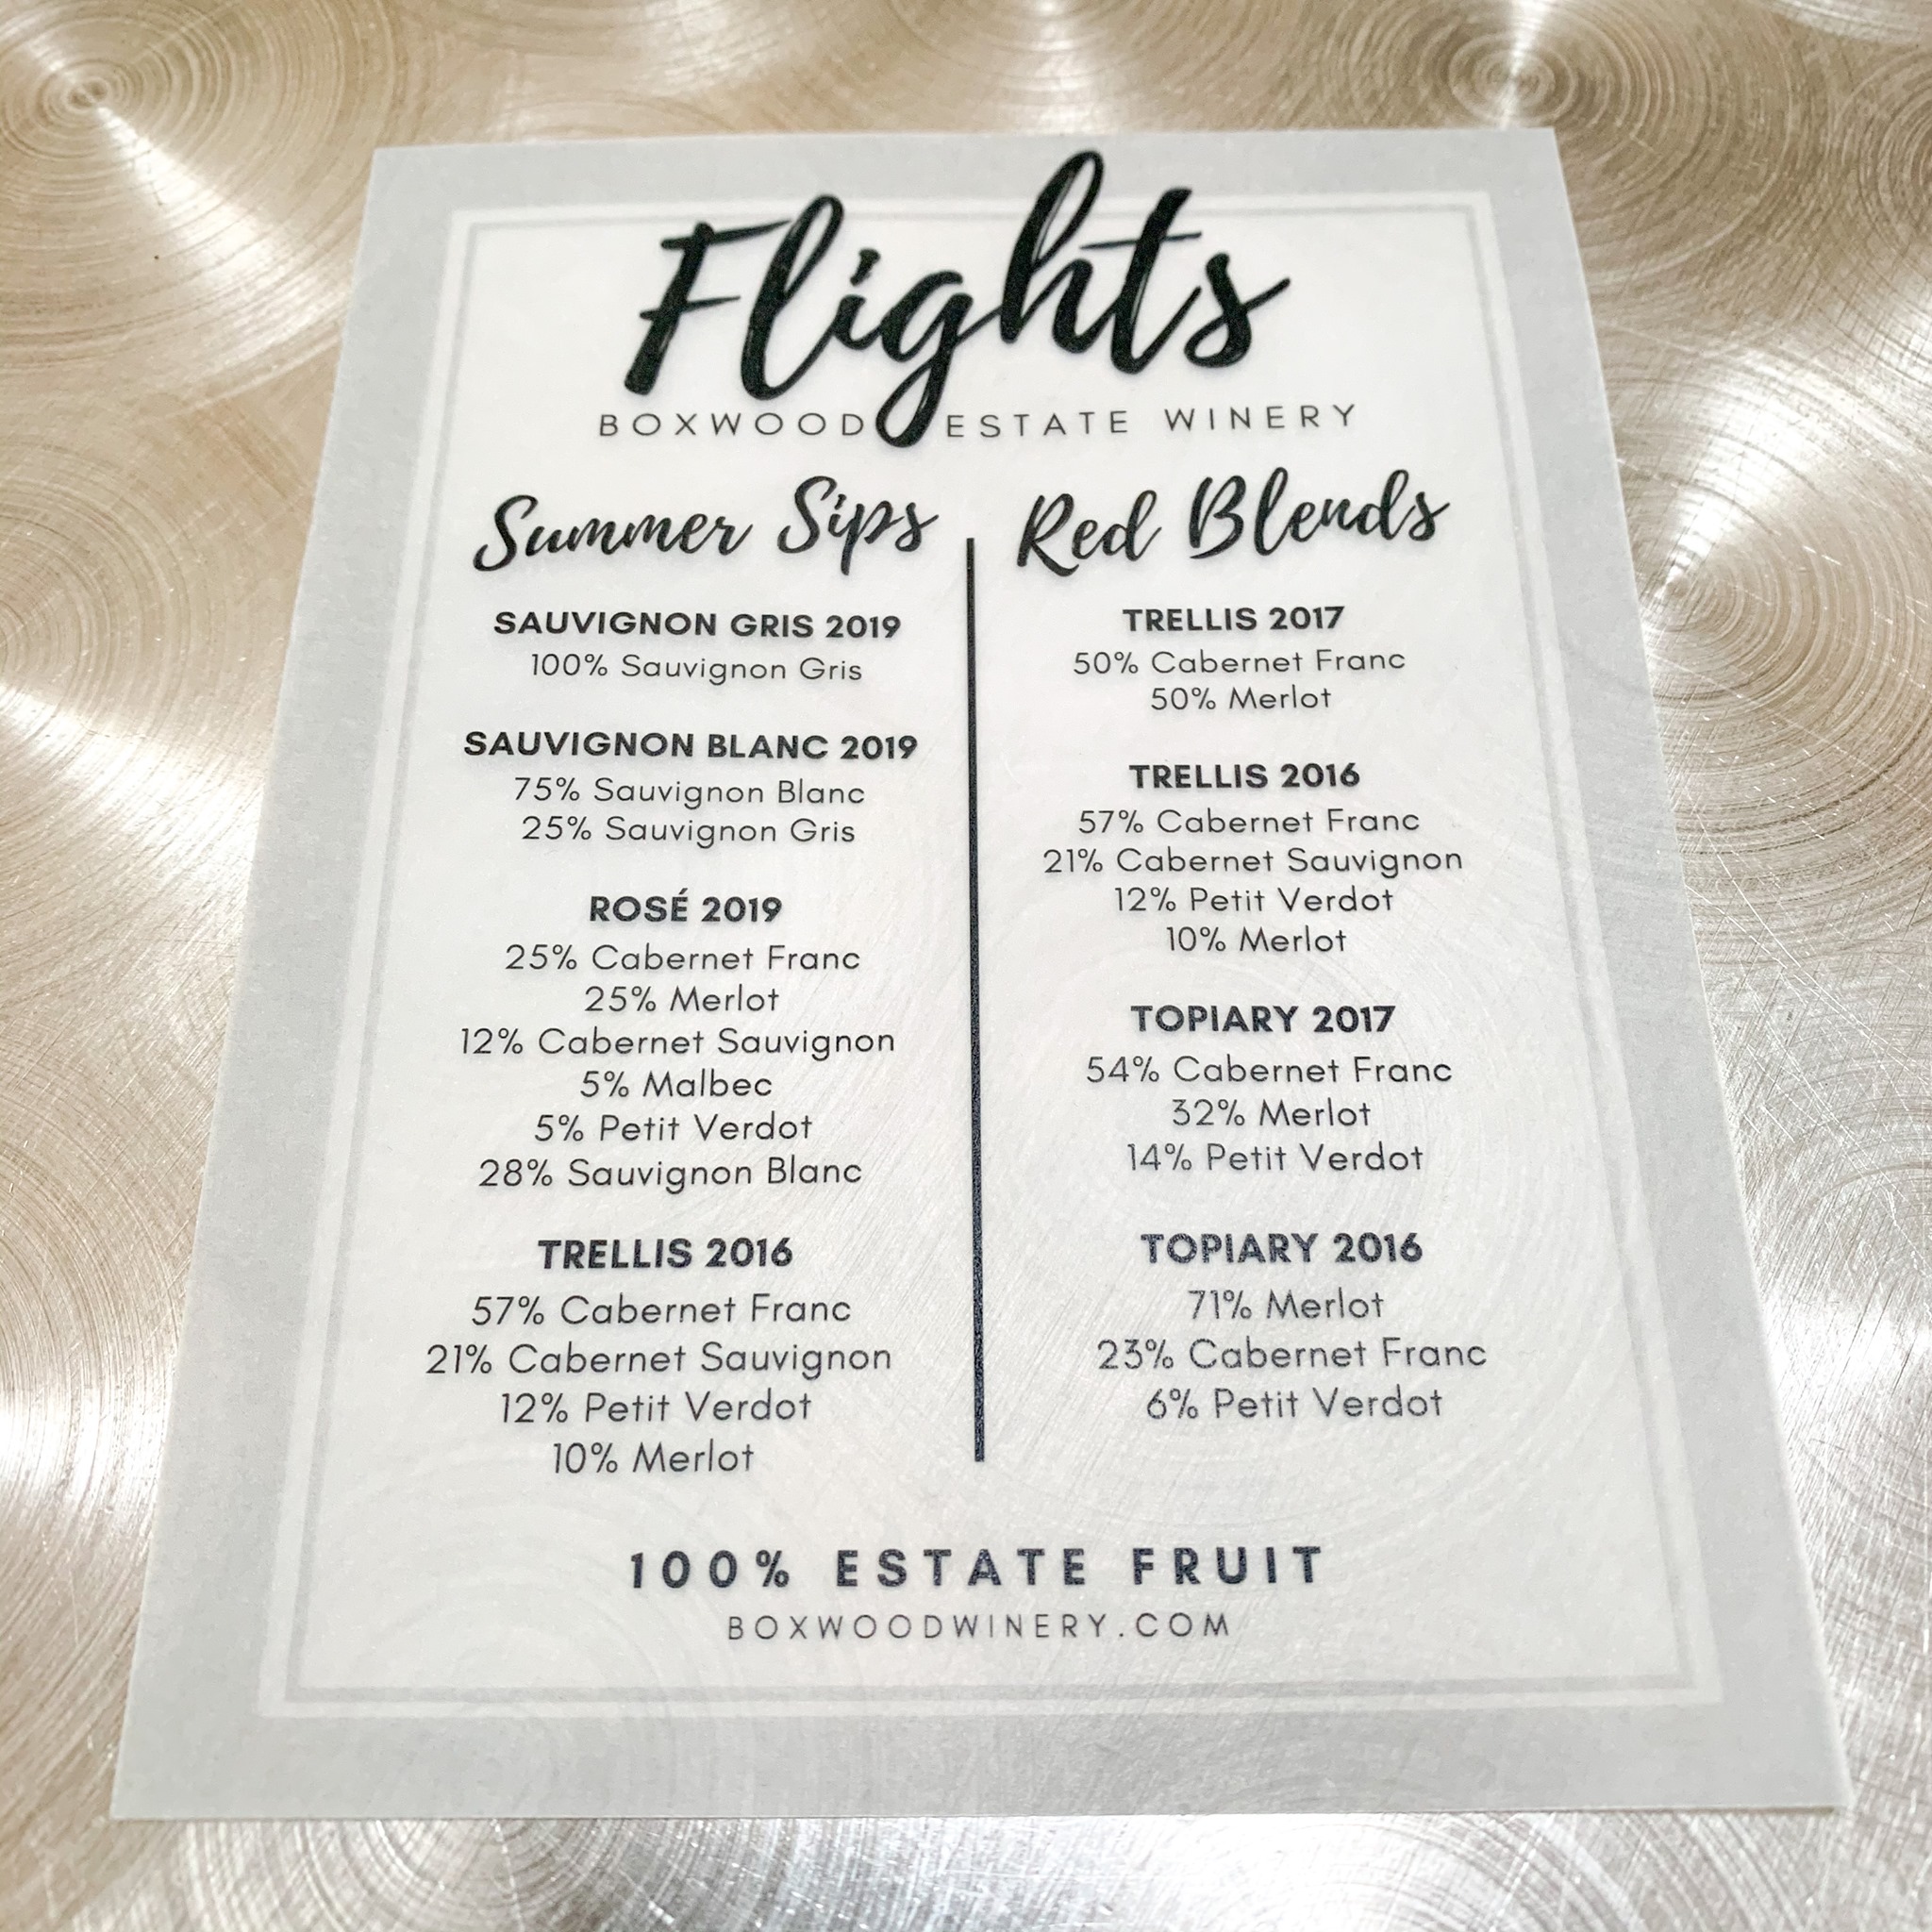 Flights
BOXWOOD ESTATE WINERY
Summer Sips
SAUVIGNON GRIS 2019
100% Sauvignon Gris
SAUVIGNON BLANC 2019
75% Sauvignon Blanc
25% Sauvignon Gris
ROSÉ 2019
25% Cabernet Franc
25% Merlot
12% Cabernet Sauvignon
5% Malbec
5% Petit Verdot
28% Sauvignon Blanc
TRELLIS 2016
57% Cabernet Franc
21% Cabernet Sauvignon
12% Petit Verdot
10% Merlot
Red Blends
TRELLIS 2017
50% Cabernet Franc
50% Merlot
TRELLIS 2016
57% Cabernet Franc
21% Cabernet Sauvignon
12% Petit Verdot
10% Merlot
TOPIARY 2017
54% Cabernet Franc
32% Merlot
14% Petit Verdot
TOPIARY 2016
71% Merlot
23% Cabernet Franc
6% Petit Verdot
100% ESTATE FRUIT
BOXWOODWINERY.COM